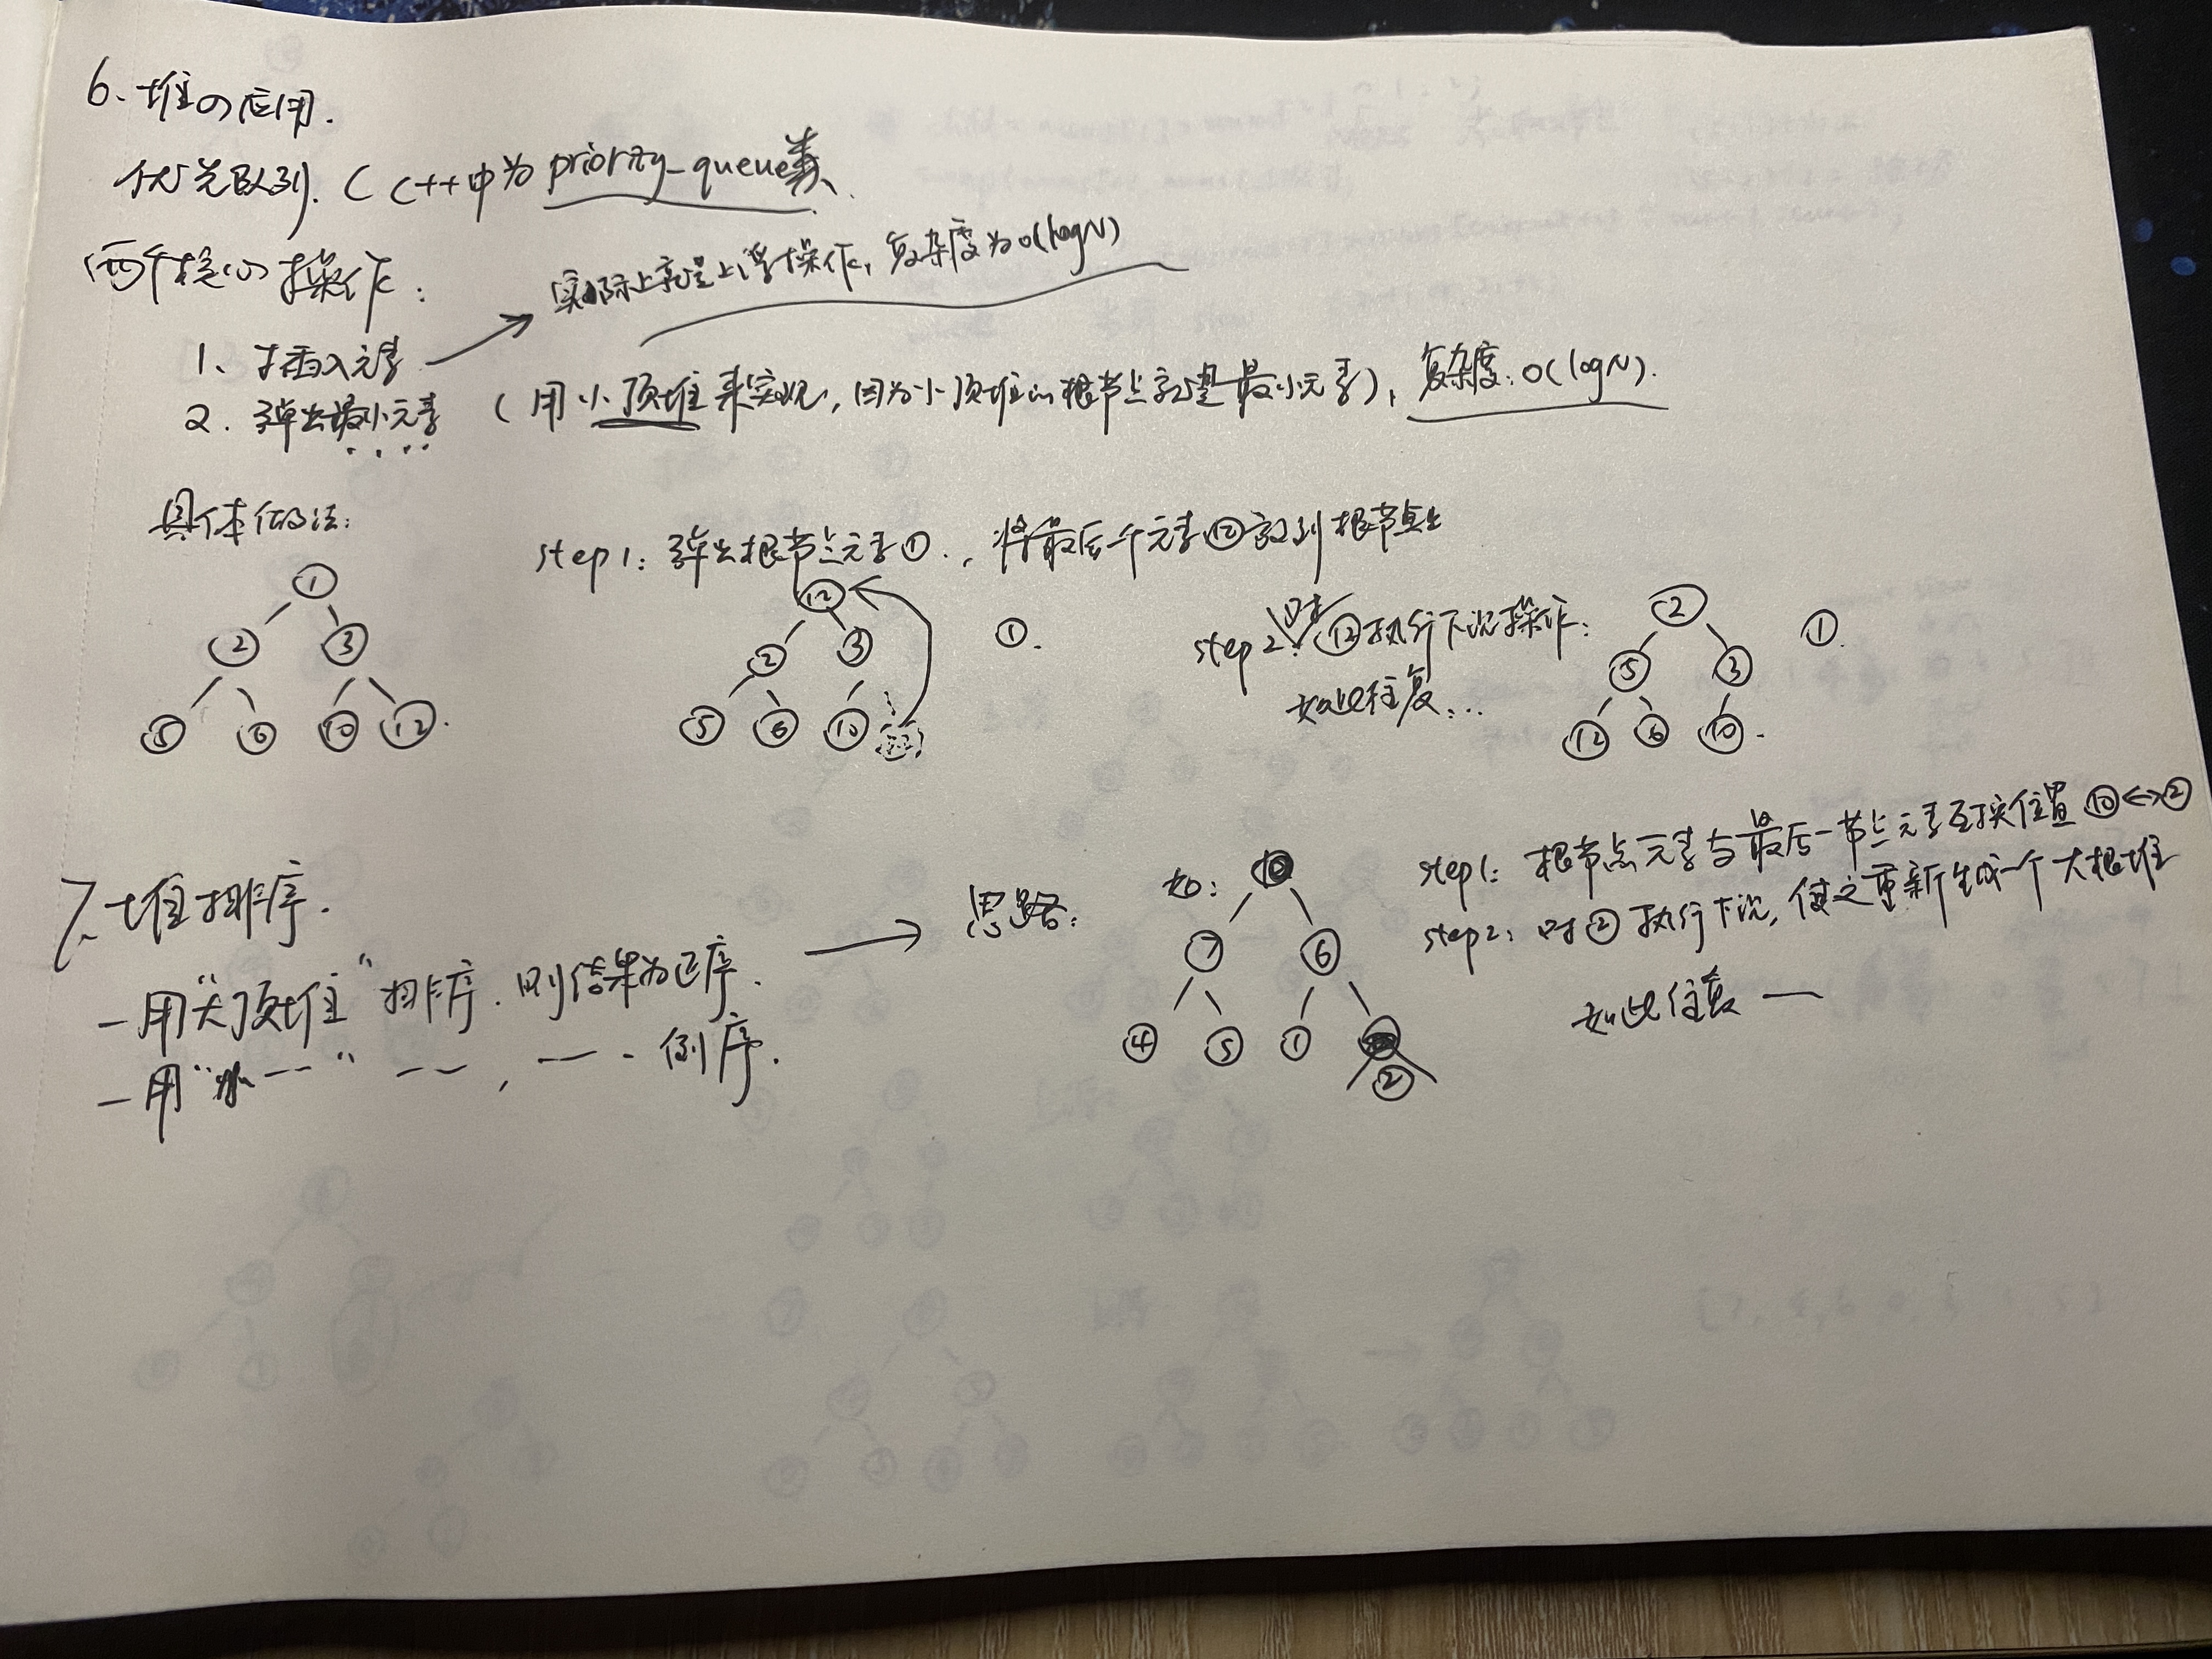 6、堆の应用.
优先队列. ( C++中为priority_queue类
两个核心操作:
实际上就是上浮操作, 复杂度为O(logN)
1、插入元素
2. 弹出最小元素 (用小顶堆来实现, 因为小顶堆的根节点就是最小元素), 复杂度: O(logN).
具体做法:
step1: 弹出根节点元素①., 将最后一个元素⑫放到根节点上
① ② ③ ⑤ ⑥ ⑩ ⑫.
⑫ ② ③ ⑤ ⑥ ⑩ ⑫ ①.
step2: 对⑫执行下沉操作:
如此往复...
② ⑤ ③ ⑫ ⑥ ⑩. ①.
7、堆排序.
—用“大顶堆”排序. 则结果为正序.
—用“小——” ——, —— 倒序.
思路:
如: ⑩ ⑦ ⑥ ④ ⑤ ① ②
step1: 根节点元素与最后一节点元素互换位置 ⑩<->②
step2: 对②执行下沉, 使之重新生成一个大根堆
如此往复 —